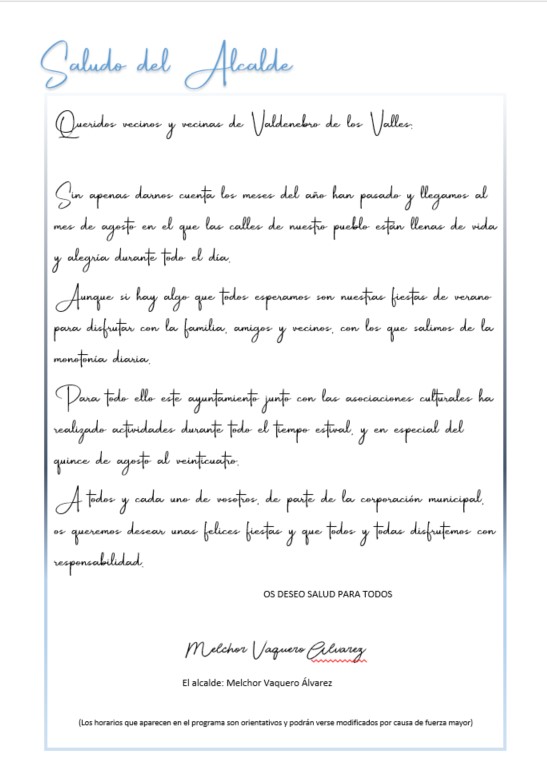 Saludo del Alcalde
Queridos vecinos y vecinas de Valdenebro de los Valles:
Sin apenas darnos cuenta los meses del año han pasado y llegamos al
mes de agosto en el que las calles de nuestro pueblo están llenas de vida
y alegría durante todo el día.
Aunque si hay algo que todos esperamos son nuestras fiestas de verano
para disfrutar con la familia, amigos y vecinos, con los que salimos de la
monotonía diaria.
Para todo ello este ayuntamiento junto con las asociaciones culturales ha
realizado actividades durante todo el tiempo estival, y en especial del
quince de agosto al veinticuatro.
A todos y cada uno de vosotros, de parte de la corporación municipal,
os queremos desear unas felices fiestas y que todos y todas disfrutemos con
responsabilidad.
OS DESEO SALUD PARA TODOS
Melchor Vaquero Álvarez
El alcalde: Melchor Vaquero Álvarez
(Los horarios que aparecen en el programa son orientativos y podrán verse modificados por causa de fuerza mayor)